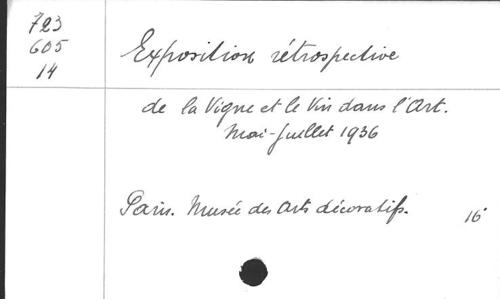 723
605
14
Exposition rétrospective
de la Vigne et le Vin dans l'Art.
Mai-Juillet 1936
Paris. Musée des Arts décoratifs. 16°